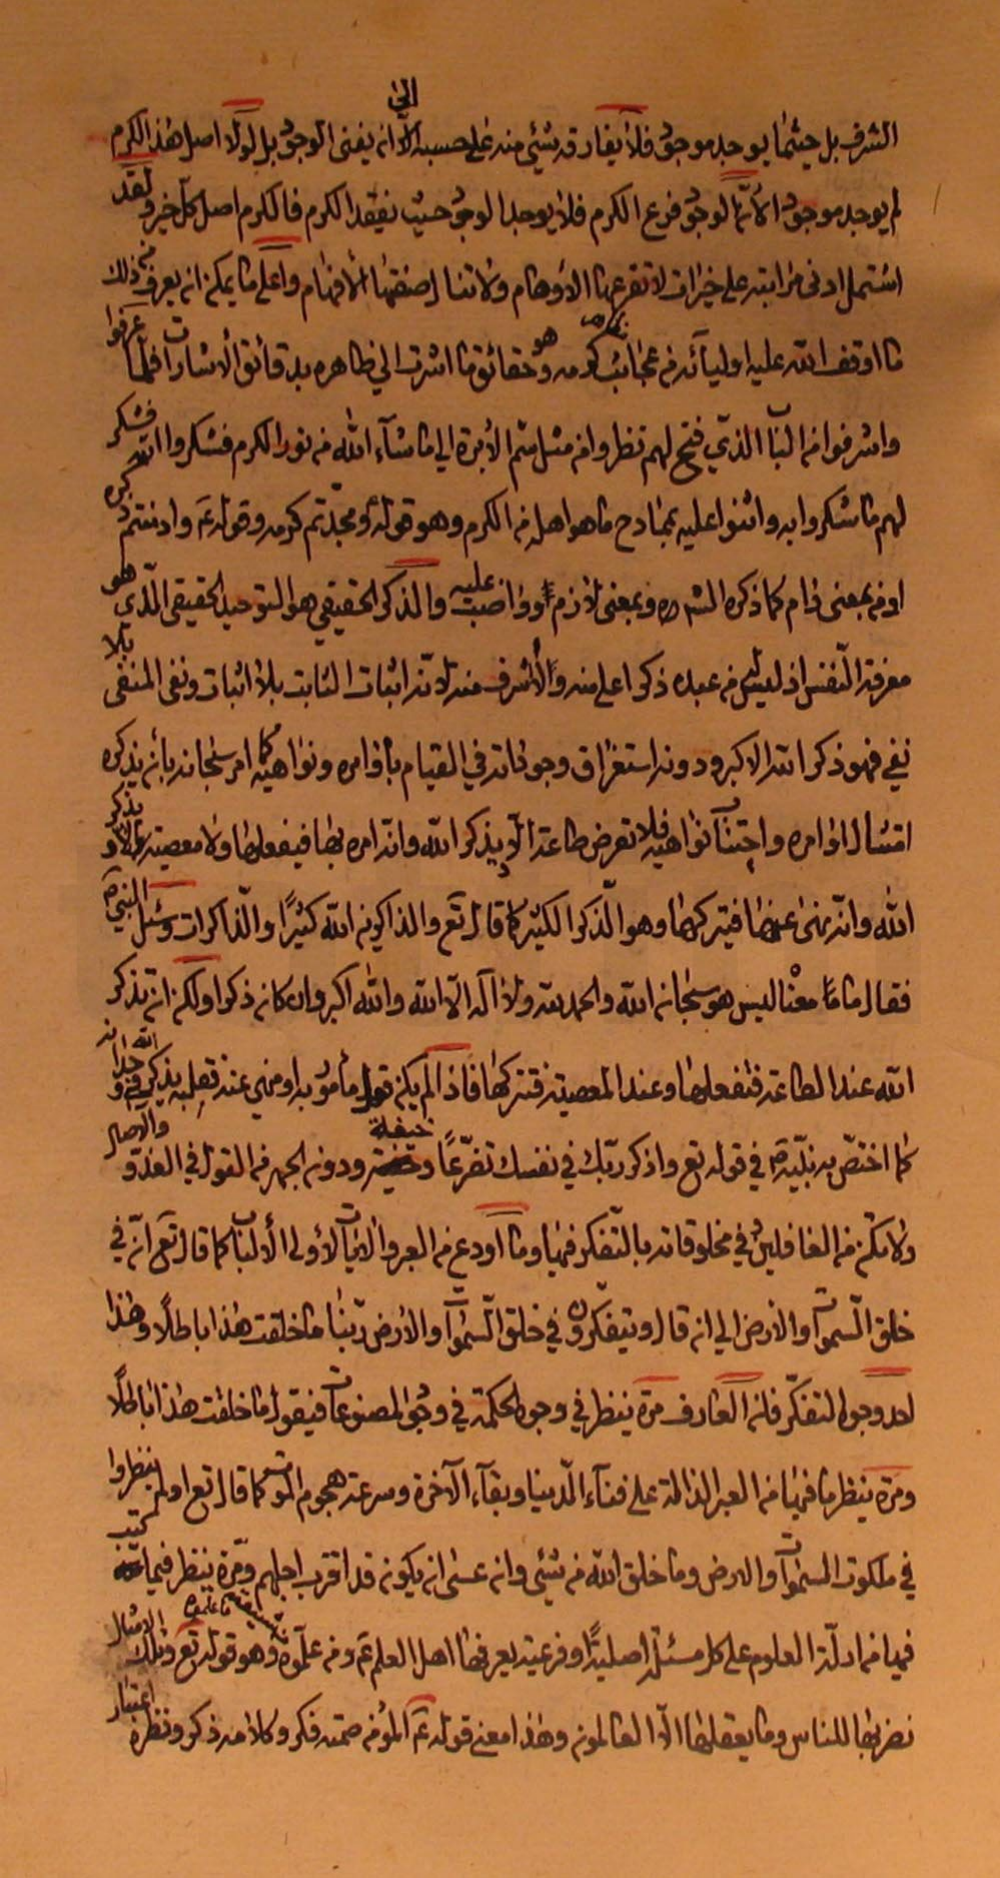 الشرف بل حيثما يوجد موجود فلا يفارقه شيئ منه على حسبه الى انه يفنى الوجود بل لولا اصل هذا الكرم
لم يوجد موجود لأنّما الوجود فرع الكرم فلا يوجد الوجود حيث يفقد الكرم فالكرم اصل كل خير ولقد
اشتمل ادنى مراتبه على خيرات لا تقرعها الاوهام ولا تنال صفتها الأفهام واعلى ما يمكن ان يعرف من ذلك
ما اوقف الله عليه اوليائه من عجائب كرمه وهو حقائق ما اشرت الى ظاهره بدقائق الاشارات فلما عرفوا
واشرفوا من الباب الذي فتح لهم نظروا من مثل سم الأبرة الى ما شاء الله من نور الكرم فشكروا الله فشكر
لهم ما شكروا به واثنوا عليه بمبادح ما هو اهله من الكرم وهو قوله ومجدتم كرمه وقوله ع وادمتم ذكره
او من بمعنى دام كما ذكره الشره وبمعنى لازم او واضب عليه والذكر الحقيقي هو التوحيد الحقيقي الذي هو
معرفة النفس اذ ليس من عبده ذكر اعلى منه ولا اشرف منه لانه اثبات الثابت بلا اثبات ونفى المنفى بلا
نفي فهو ذكر الله الاكبر ودونه استغراق وجودانه في القيام بأوامره ونواهيه كما امر سبحانه بأن يذكره
امتثال اوامره واجتناب نواهيه فلا تعرض طاعة الّا ويذكر الله وانه امره بها فيفعلها ولا معصية الا ويذكر
الله وانه نهى عنها فيتركها وهو الذكر الكثير كما قال تع والذاكرين الله كثيرًا والذّاكرات وسئل النبي ص
فقال ما معناه ليس هو سبحان الله والحمد لله ولا اله الا الله والله اكبر وان كان ذكرا ولكن ان تذكر
الله عند الطاعة فتفعلها وعند المعصية فتتركها فاذا لم يكن مأمور به او منهي عنه فعليه بذكر الله في وجدانه
كما اختص به نبيّه ص في قوله تع واذكر ربك في نفسك تضرّعًا وخيفة ودون الجهر من القول في الغدو والاصال
ولا تكن من الغافلين في مخلوقاته بالتفكر فيها وما اودع من العبر والايات لاولى الألباب كما قال تع انّ في
خلق السموات والارض الى ان قال ويتفكرون في خلق السموات والأرض ربنا ما خلقت هذا باطلًا وهذا
احد وجوه التفكر فان العارف مرّة ينظر في وجود الحكمة في وجود المصنوعات فيقول ما خلقت هذا باطلًا
ومرة ينظر ما فيها من العبر الدالة على فناء الدنيا وبقاء الآخرة وسرعة هجوم الموت كما قال تع اولم ينظروا
في ملكوت السموات والارض وما خلق الله من شيئ وان عسى ان يكون قد اقترب اجلهم ومرّة ينظر فيما كتب
فيها من ادلّة العلوم على كل مسئلة اصلية او فرعية يعرفها اهل العلم ع ومن علّموه وهو قوله تع وتلك الامثال
نضربها للناس وما يعقلها الا العالمون وهذا معنى قوله ع المؤمن صمته فكر وكلامه ذكر ونظره اعتبار